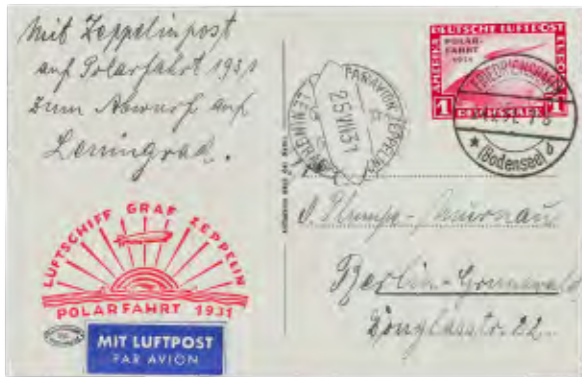 Mit Zeppelinpost
auf Polarfahrt 1931
zum Abwurf auf
Leningrad.
LUFTSCHIFF GRAF ZEPPELIN
POLARFAHRT 1931
MIT LUFTPOST
PAR AVION
DEUTSCHE LUFTPOST
POLAR-
FAHRT
1931
1 REICHSMARK 1
FRIEDRICHSHAFEN
(Bodensee) d
PAR AVION ZEPPELIN
25 VII 31
LENINGRAD
Plumpe-Murnau
Berlin-Grunewald
Douglasstr. 22.